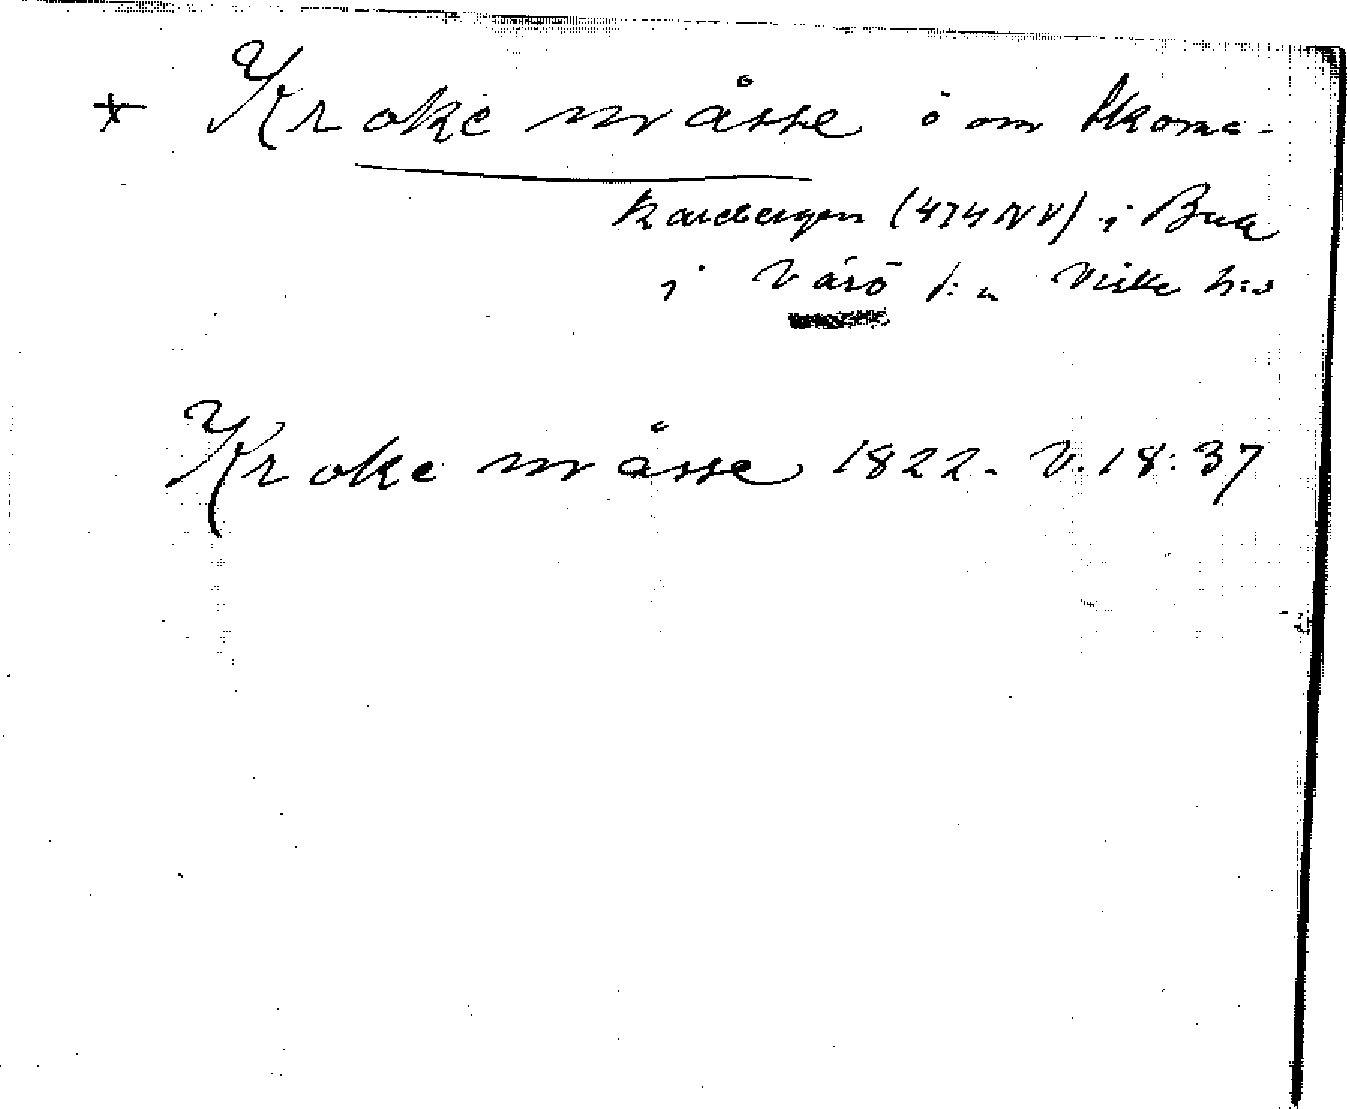 * Kroke måsse ö om Skoma-
karebergen (474NV) i Bua
i Värö s:n Viske h:d
Kroke måsse 1822. V. 18:37